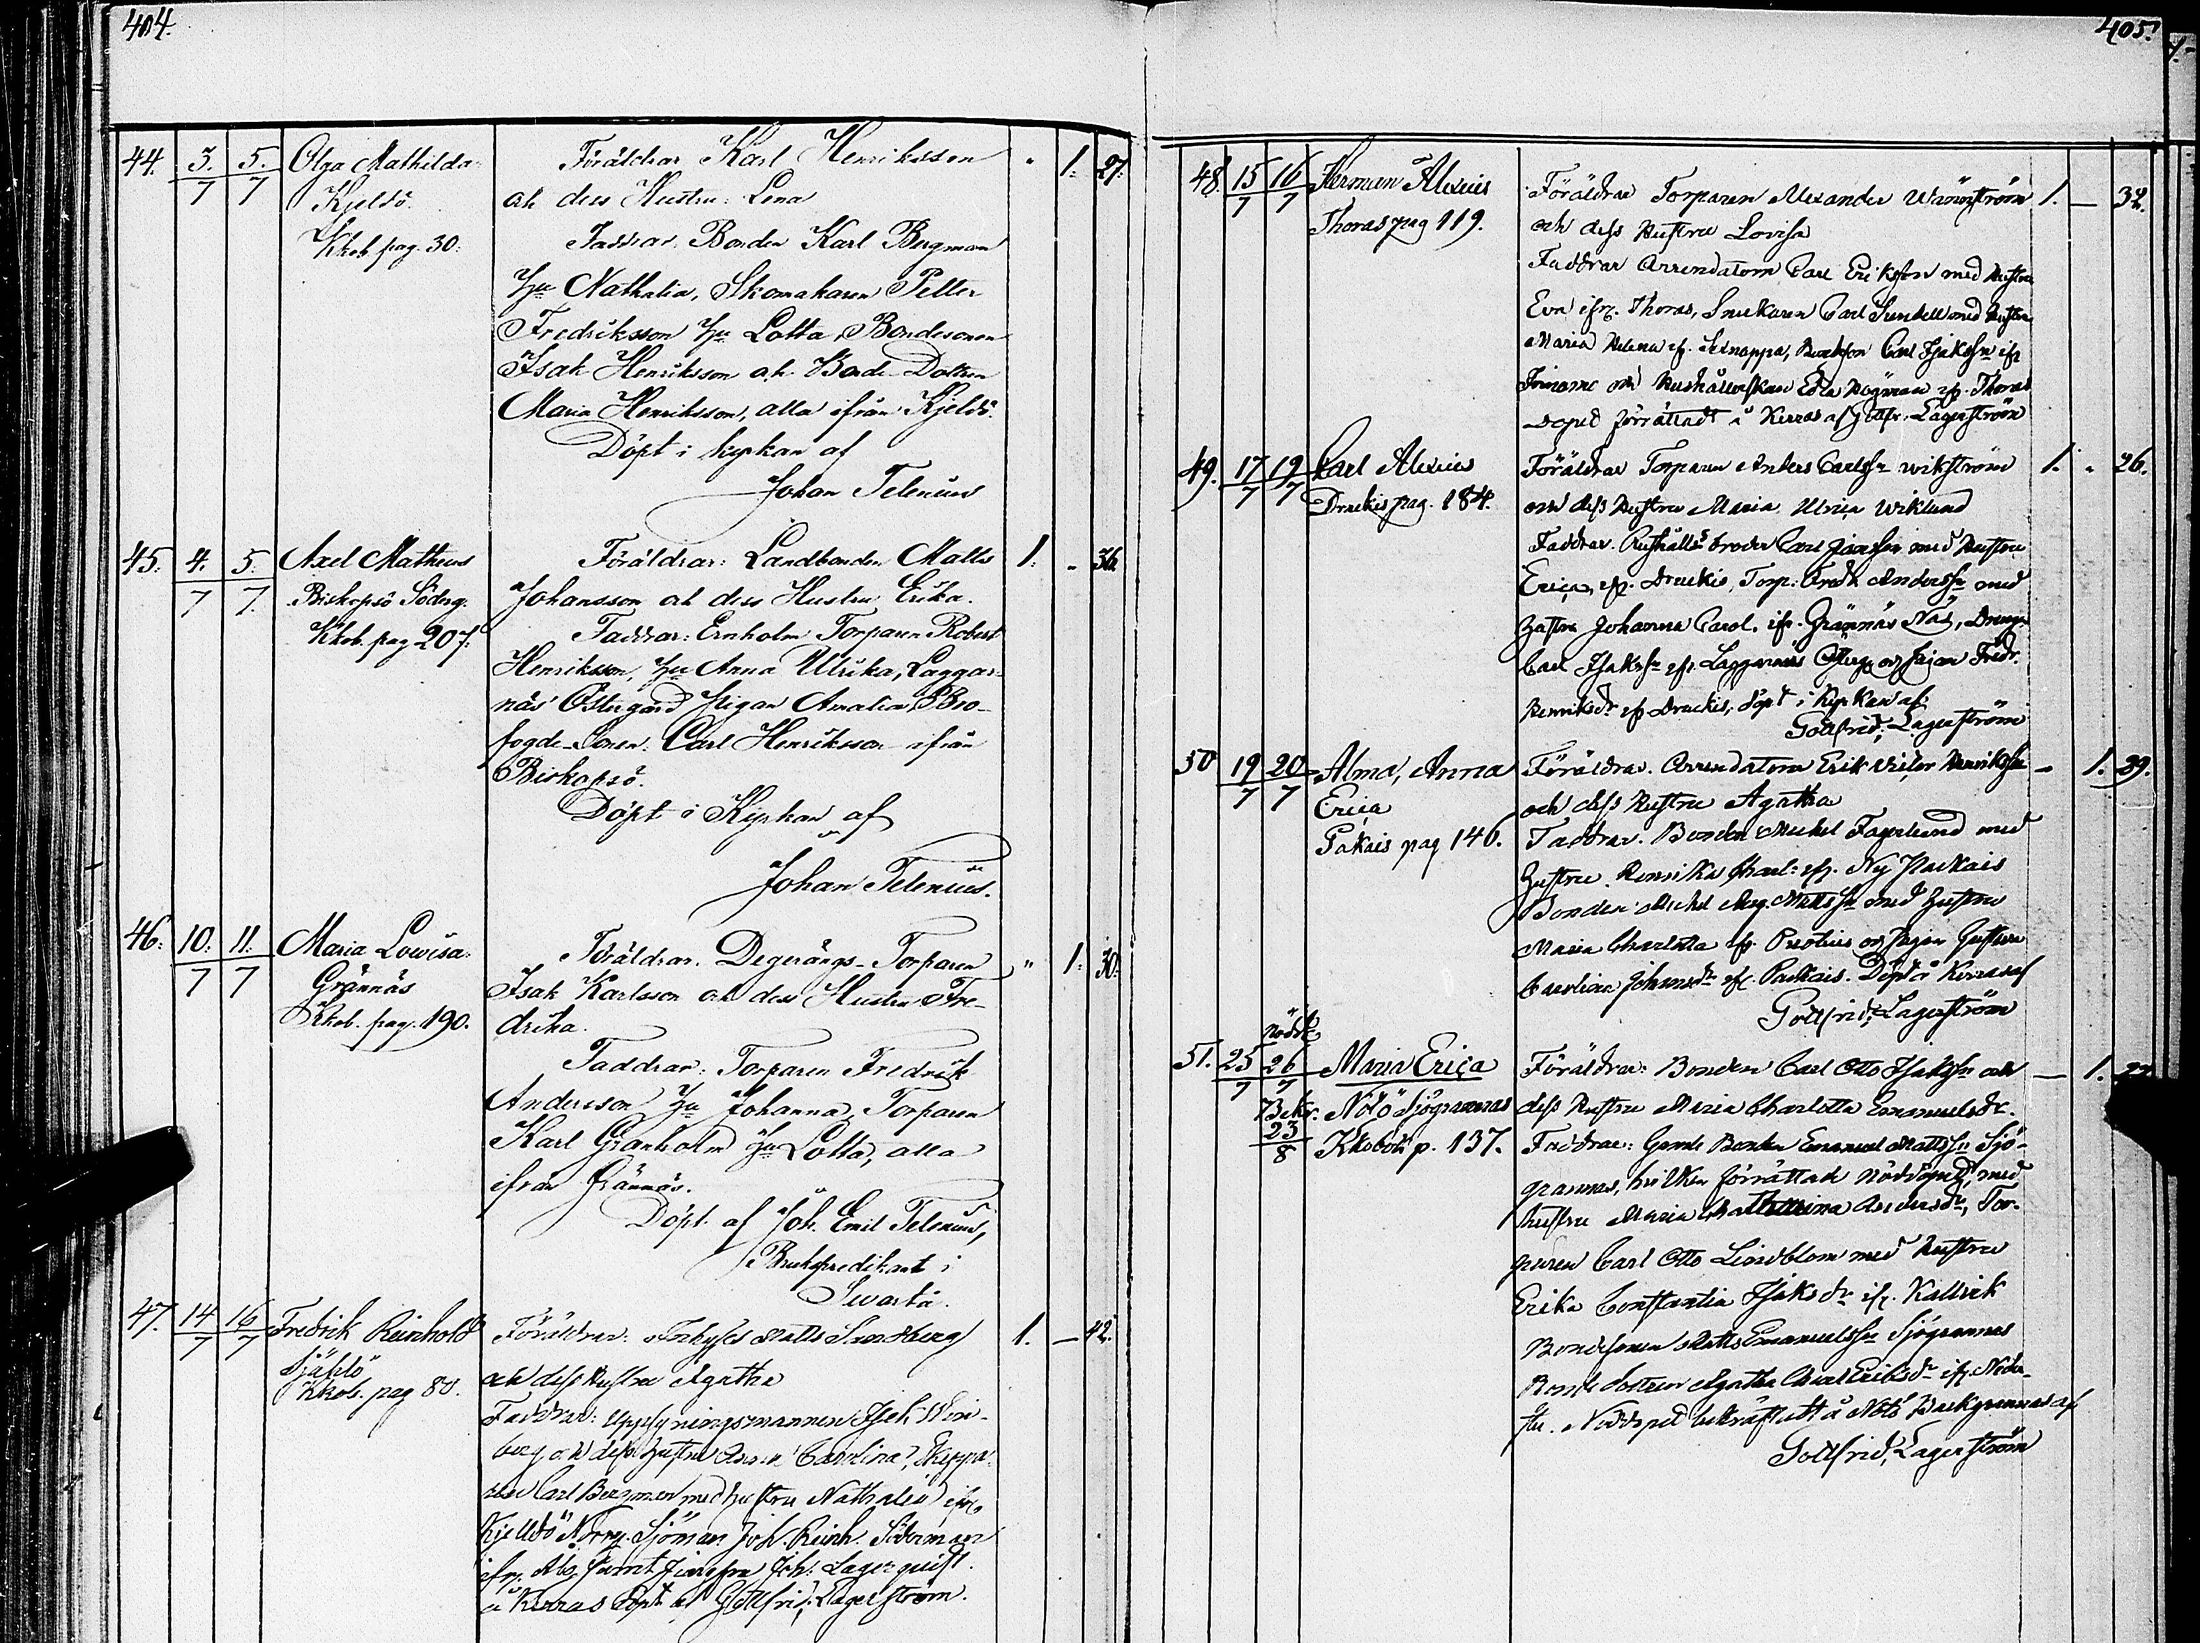 404.
44. 3/7 5./7 Olga Mathilda. Föräldrar Karl Henriksson " 1. 27.
Kjeldö. och dess Hustru: Lena
Kkob. pag. 30. Faddrar. Bonden Karl Bergman
Hu Nathalia, Skomakaren Petter
Fredriksson Hu Lotta, Bondesonen
Isak Henriksson och Bonde-Dottren
Maria Henriksson, alla ifrån Kjeldö.
Döpt i kyrkan af
Johan Telenius
45. 4./7 5./7. Axel Matheus Föräldrar: Landbonden Matts 1. " 36.
Biskopsö Söderg. Johansson och dess Hustru Erika.
Kkob. pag 207. Faddrar: Ernholm Torparen Robert
Henriksson, Hu Anna Ulrika, Laggar-
näs Östergård Pigan Amalia, Bro-
fogde-Sonen: Carl Henriksson ifrån
Biskopsö.
Döpt i Kyrkan af
Johan Telenius.
46. 10./7 11./7 Maria Lowisa. Föräldrar. Degerängs-Torparen " 1. 30.
Grännäs Isak Karlsson och dess Hustru Fre-
Kkob. pag. 190. drika.
Faddrar: Torparen Fredrik
Andersson Hu Johanna, Torparen
Karl Granholm Hu Lotta, alla
ifrån Grännäs.
Döpt af Joh. Emil Telenius,
Brukspredikant i
Svartå.
47. 14/7 16/7 Fredrik Reinhold Föräldrar: Matts Sundberg 1. — 42.
Själö och dess Hustru Agatha
Kkob. pag 80. Faddrar: Uppsyningsmannen Isak
berg och dess hustru Carolina,
Carl Bergman med hustru Nathalia ifr.
Kjeldö Norrg. Sjöman Joh. Reinh. Söderman
ifr. samt Joh. Lagerquist.
å Kirras döpt af Gottfrid Lagerström.
405.
48. 15/7 16/7 Herman Alexius Föräldrar Torparen Alexander Wännström 1. — 32.
Thoras pag 119. och dess Hustru Lovisa
Faddrar Arrendatorn Carl Eriksson med Hustru
Eva ifr. Thoras, Snickaren Carl Sundell med Hustru
Maria Helena ifr. Carl Isakssn ifr
och Hushållerskan Edla ifr. Thoras
Dopet förrättadt å Kirras af Gottfr. Lagerström
49. 17/7 19/7 Carl Alexius Föräldrar Torparen Anders Carlssn Wikström 1. " 26.
Druckis pag. 184. och dess Hustru Maria Ulrica Wiklund
Faddrar. Rusthålls broder Carl med Hustru
Erica, ifr. Druckis, Torp. Fredr. Anderssn med
Hustru Johanna Carol. ifr. Grännäs Näs, Dreng
Carl Isakssn ifr. Laggarnäs Österg. och Pigan Fredr.
Henriksdr ifr Druckis, döpt i Kyrkan af
Gottfrid Lagerström
50 19/7 20/7 Alma, Anna Föräldrar. Arrendatorn Erik Victor Henrikssn — 1. 29.
Erica och dess Hustru Agatha
Pakais pag 146. Faddrar. Bonden Michel Fagerlund med
Hustru Henrika Charl: ifr. Ny Pakais
Bonden Michel Aug. Mattssn med Hustru
Maria Charlotta ifr. Prostvik och Pigan Gustava
Carolina Johansdr ifr. Pakais. Döpt å Kirras af
Gottfrid Lagerström
Nödd.
51. 25/7 26/7 Maria Erica Föräldrar: Bonden Carl Otto Isakssn och — 1. 22.
Bekr. Nötö Sjögrannas dess Hustru Maria Charlotta Emanuelsdr.
23/8 Kkobok p. 137. Faddrar: Gamle Bonden Emanuel Mattssn Sjö-
grannas, hvilken förrättade nöddopet, med
hustru Maria Andersdr, Tor-
paren Carl Otto Lindblom med Hustru
Erika Constantia Isaksdr ifr. Kallvik
Bondesonen Matts Emanuelssn Sjögrannas
Bonde dottren Agatha Eriksdr ifr.
Nöddopet bekräftadt å Nötö Backgrannas af
Gottfrid Lagerström